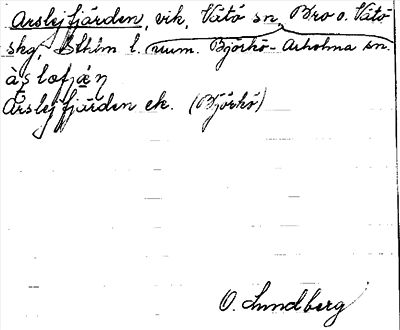 Arslejfjärden, vik, Vätö sn, Bro o. Vätö
skg, Sthlm l. num. Björkö-Arholma sn.
Arslejfjärden ek. (Björkö)
O. Lundberg